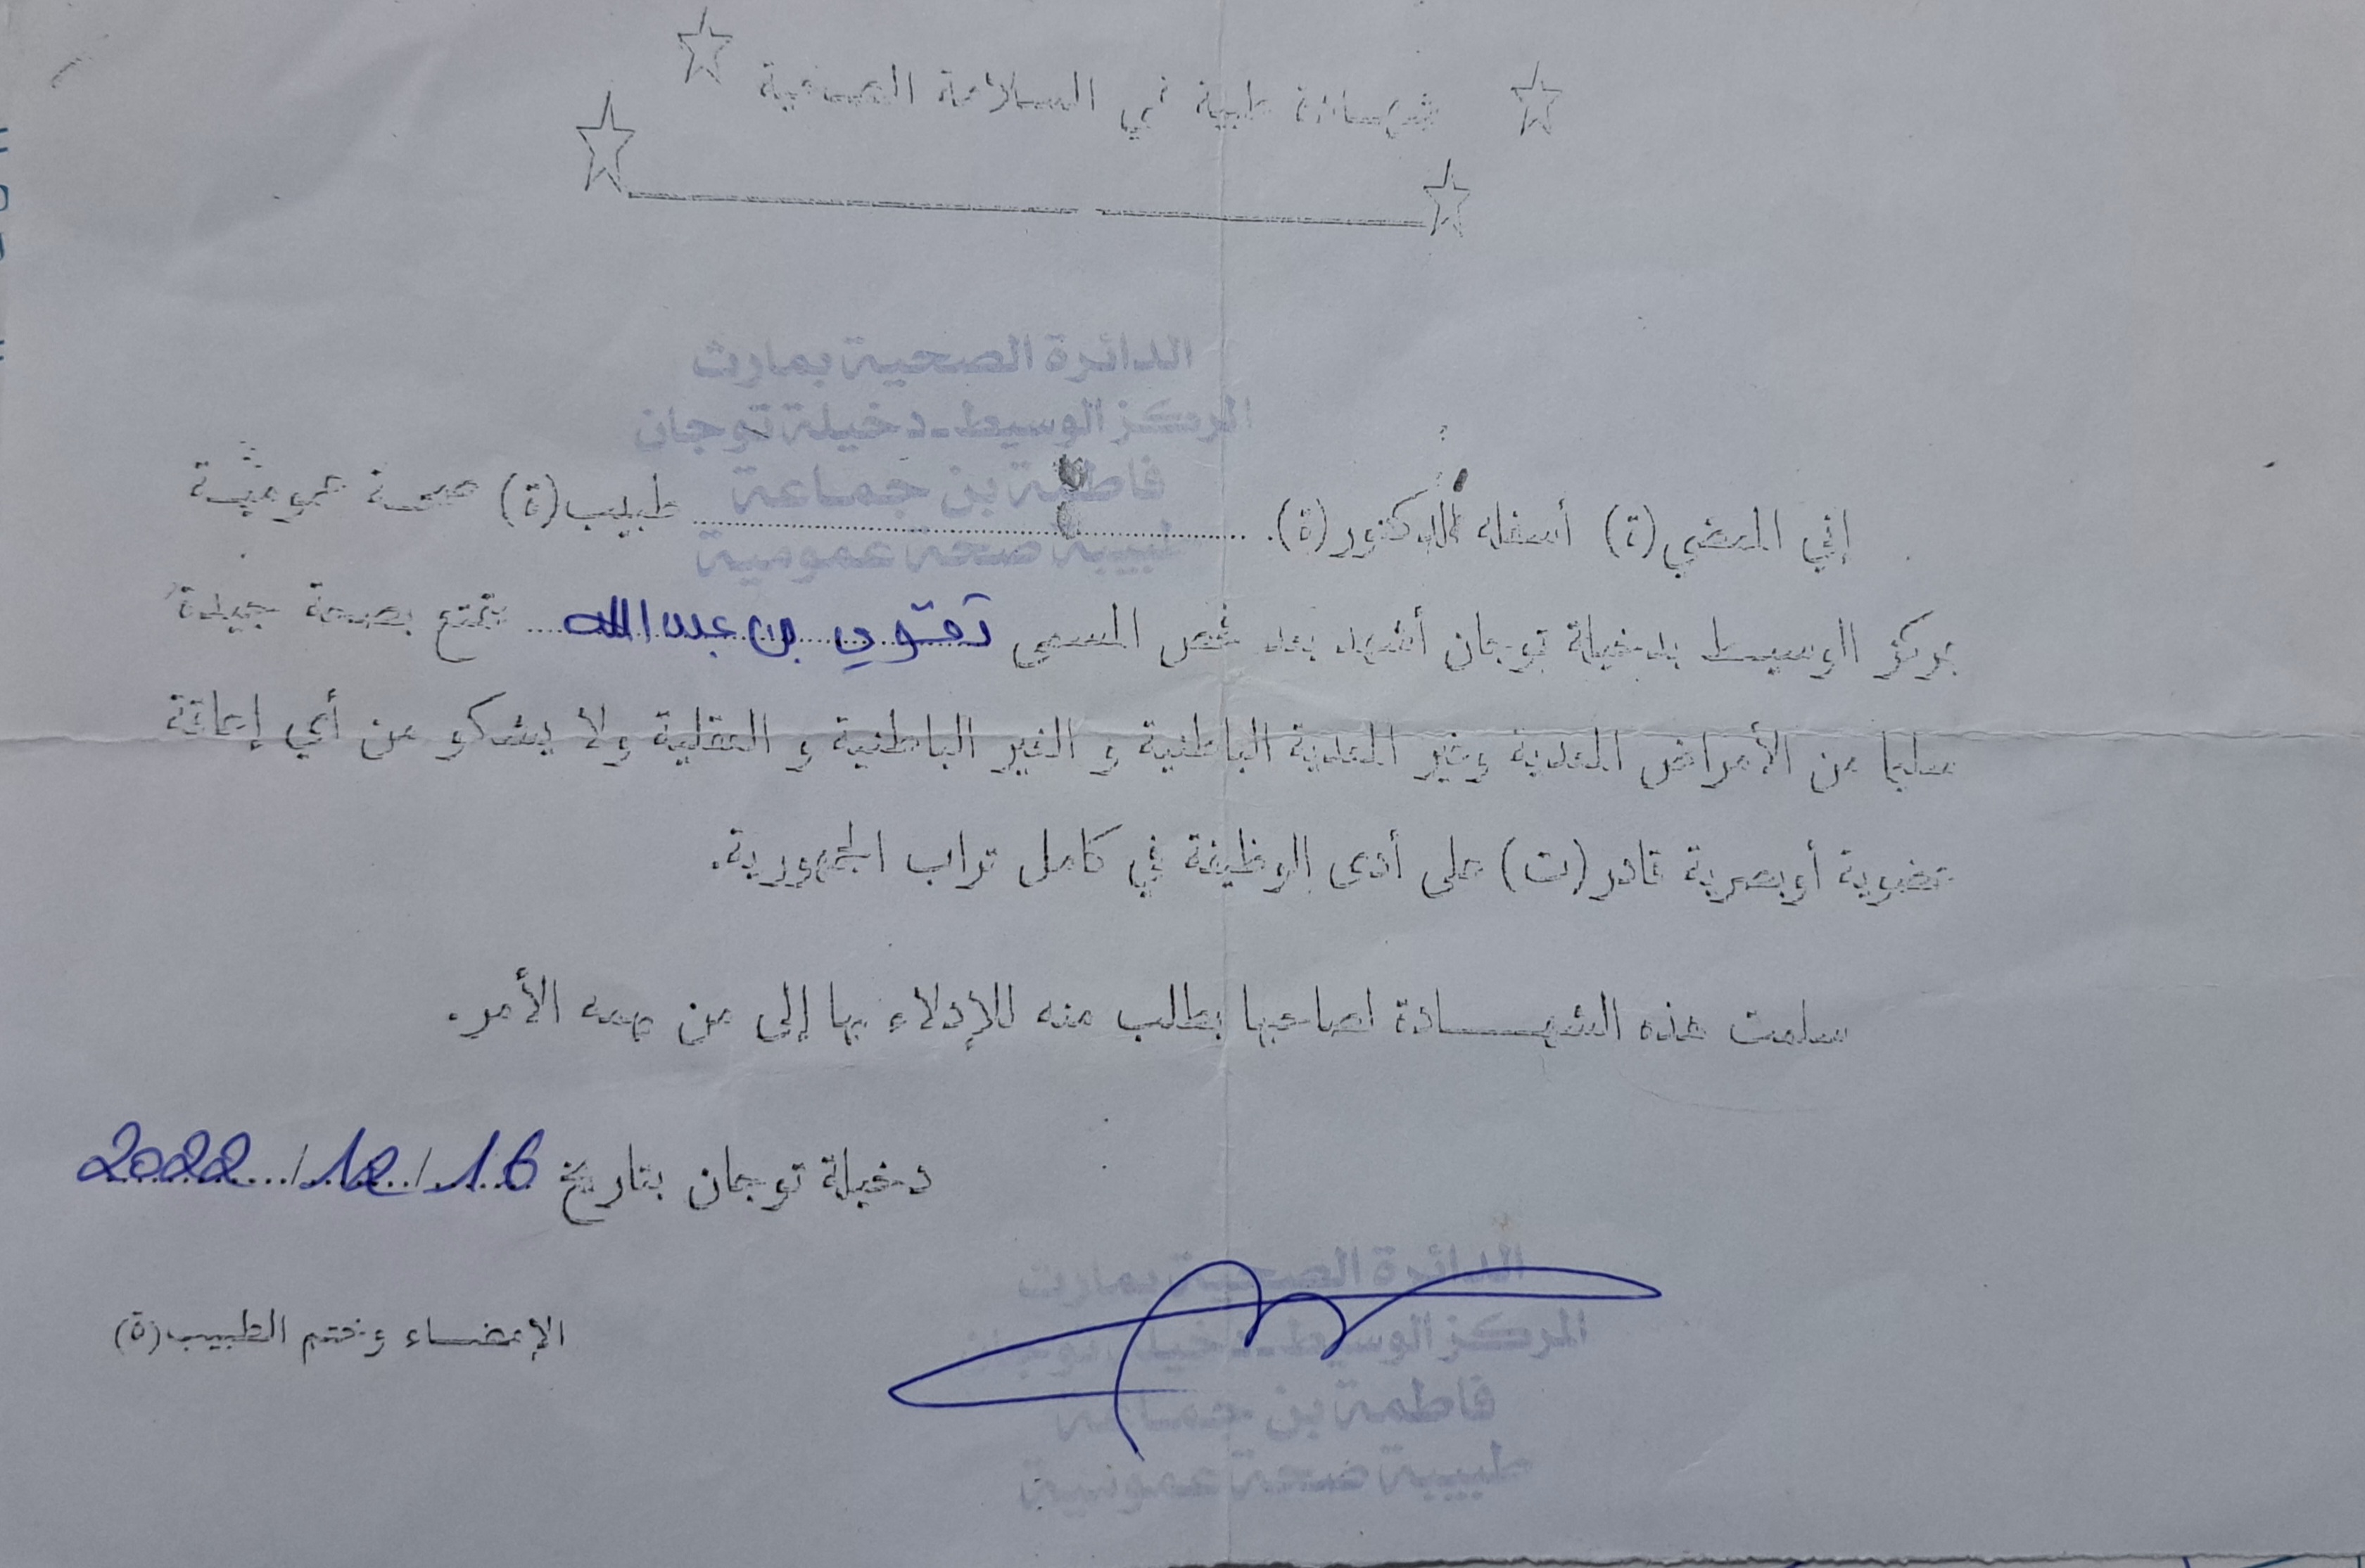 شهادة طبية في السلامة الصحية
الدائرة الصحية بمارث
المركز الوسيط - دخيلة توجان
فاطمة بن جماعة
طبيبة صحة عمومية
إني الممضي(ة) أسفله الدكتور(ة). طبيب(ة) صحة عموميــة
بمركز الوسيط بدخيلة توجان أشهد بعد فحص المسمى تقوى بن عبد الله يتمتع بصحة جيدة
سليما من الأمراض المعدية وغير المعدية الباطنية و الغير الباطنية و العقلية ولا يشكو من أي إعاقة
عضوية أوبصرية قادر(ت) على أدى الوظيفة في كامل تراب الجمهورية.
سلمت هذه الشهــــادة لصاحبها بطلب منه للإدلاء بها إلى من يهمه الأمر.
دخيلة توجان بتاريخ 16/12/2022
الإمضــاء وختم الطبيب(ة)
الدائرة الصحية بمارث
المركز الوسيط - دخيلة توجان
فاطمة بن جماعة
طبيبة صحة عمومية